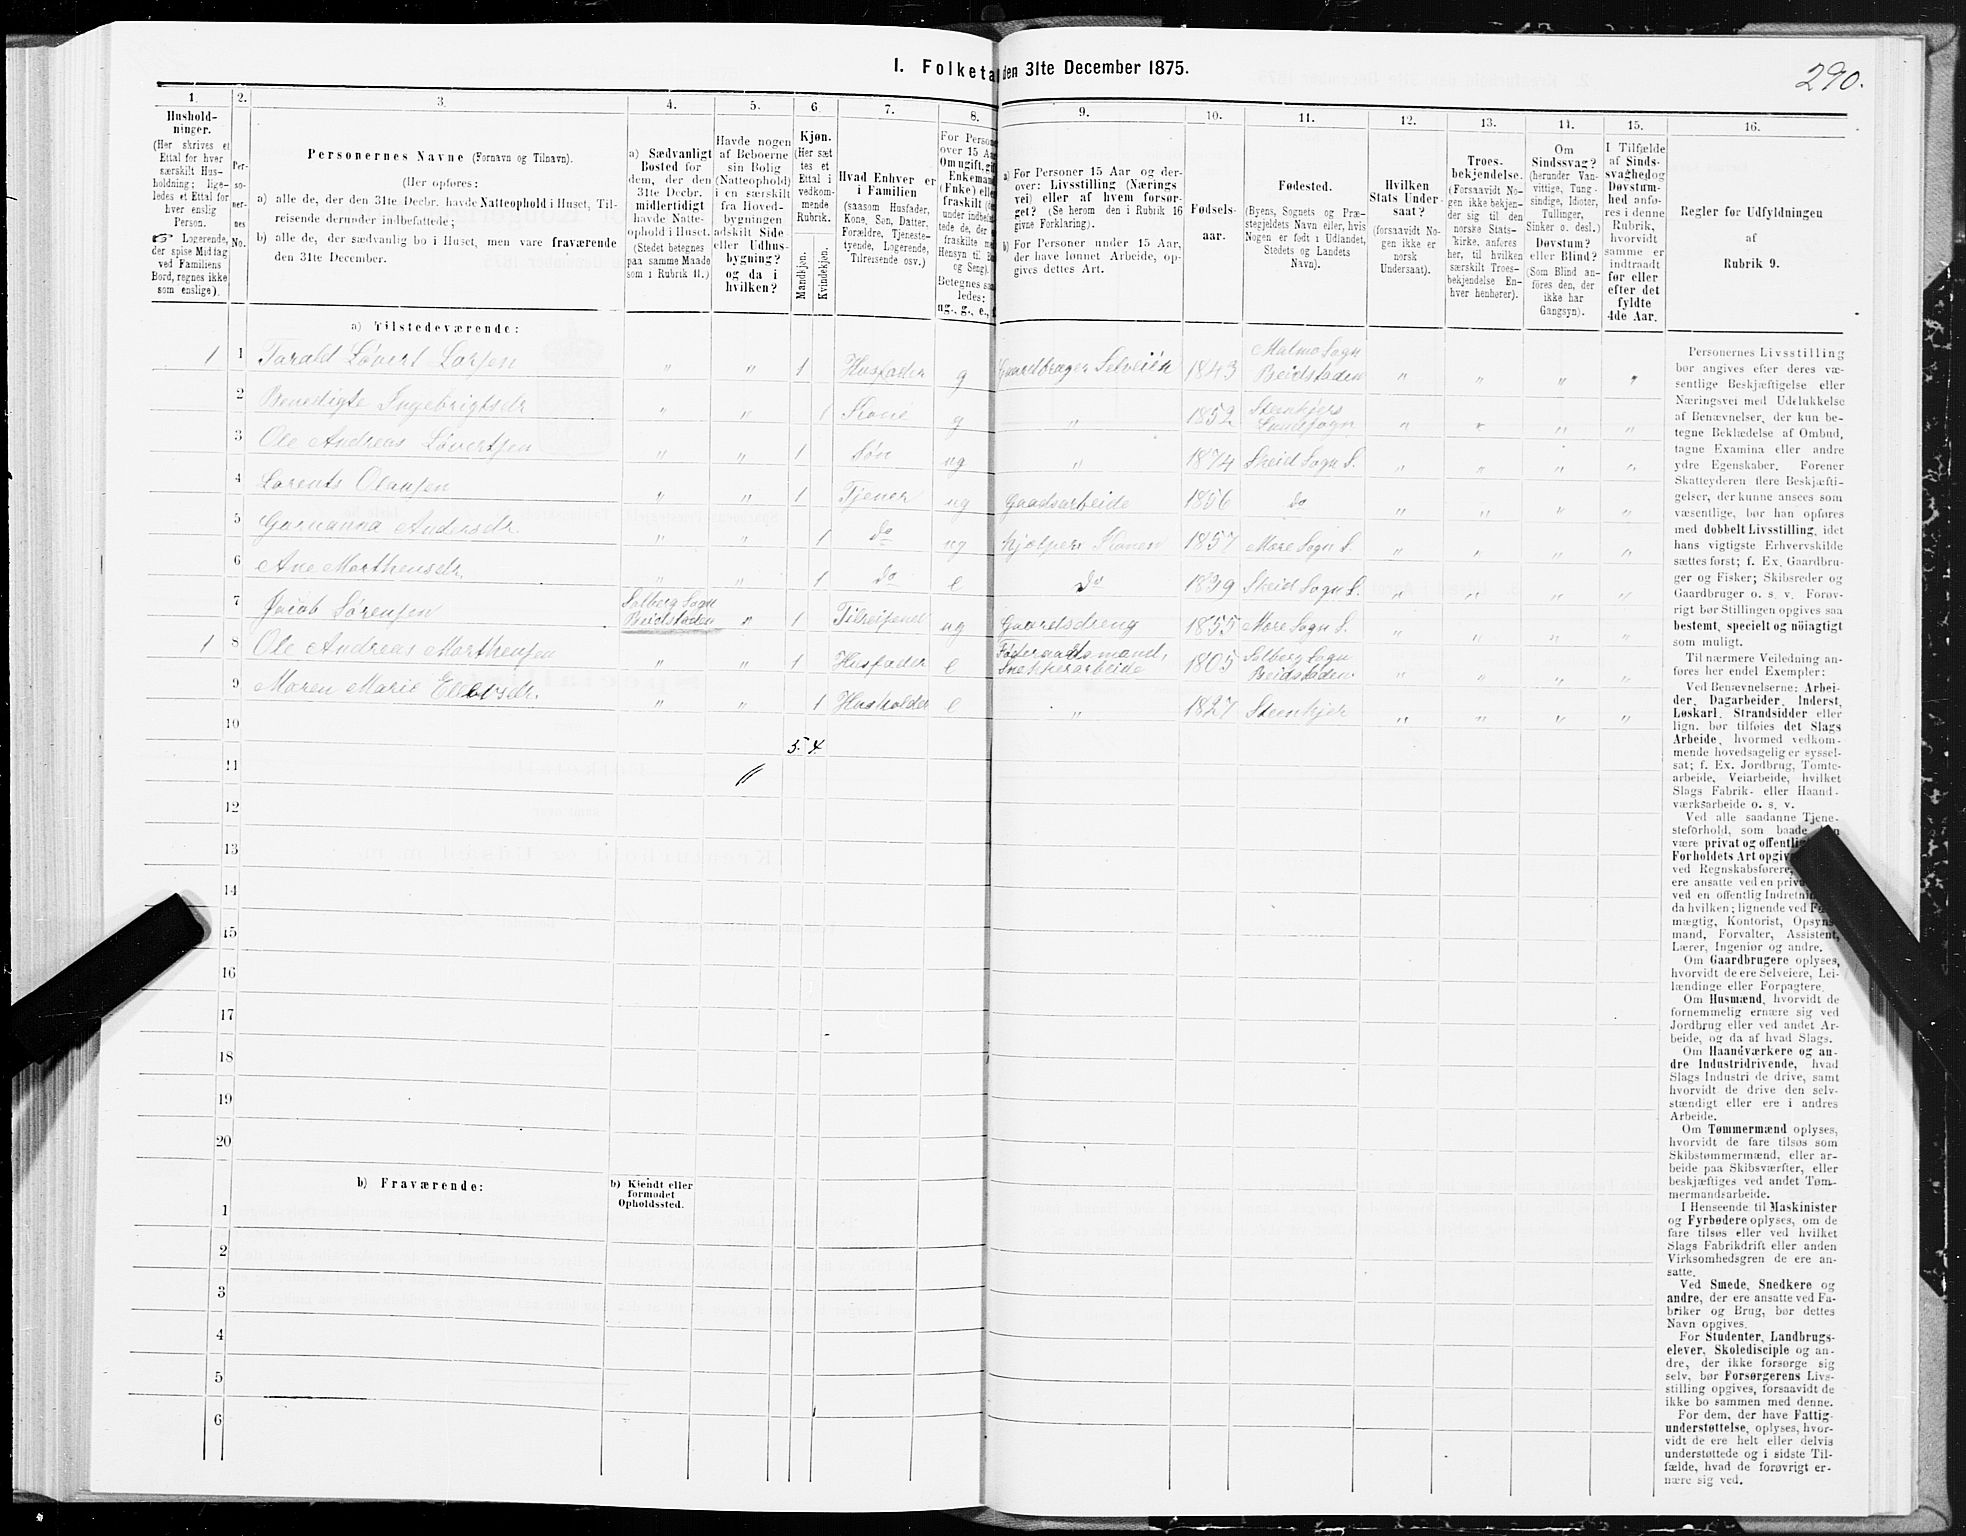 I. Folketa den 31te December 1875.
290.
1.
Hushold-
ninger.
(Her skrives et
Ettal for hver
særskilt Hus-
holdning; lige-
ledes et Ettal for
hver enslig
Person.
☞ Logerende,
der spise Middag
ved Familiens
Bord, regnes ikke
som enslige).
2.
Per-
so-
ner-
nes
No.
3.
Personernes Navne (Fornavn og Tilnavn).
(Her opføres:
a) alle de, der den 31te Decbr. havde Natteophold i Huset, Til-
reisende derunder indbefattede;
b) alle de, der sædvanlig bo i Huset, men vare fraværende
den 31te December.
4.
a) Sædvanligt
Bosted for
dem, der den
31te Decbr.
midlertidigt
havde Natte-
ophold i Huset.
(Stedet betegnes
paa samme Maade
som i Rubrik 11.)
5.
Havde nogen
af Beboerne
sin Bolig
(Natteophold)
i en særskilt
fra Hoved-
bygningen
adskilt Side-
eller Udhus-
bygning?
og da i
hvilken?
6
Kjøn.
(Her sæt
tes et
Ettal i
vedkom-
mende
Rubrik.
Mandkjøn.
Kvindekjøn.
7.
Hvad Enhver er
i Familien
(saasom Husfader,
Kone, Søn, Datter,
Forældre, Tjeneste-
tyende, Logerende,
Tilreisende osv.)
8.
For Person
over 15 Aa
Om ugift, gif
Enkemand
(Enke) elle
fraskilt (
under indbe
tede de, der
fraskilte m
Hensyn til B
og Seng).
Betegnes sa
ledes:
ug., g., e., f
9.
a) For Personer 15 Aar og der-
over: Livsstilling (Nærings
vei) eller af hvem forsør-
get? (Se herom den i Rubrik 16
givne Forklaring).
b) For Personer under 15 Aar,
der have lønnet Arbeide, op-
gives dettes Art.
10.
Fødsels-
aar.
11.
Fødested.
(Byens, Sognets og Præ-
stegjeldets Navn eller, hvis
Nogen er født i Udlandet,
Stedets og Landets
Navn).
12.
Hvilken
Stats Under-
saat?
(forsaavidt No-
gen ikke er
norsk
Undersaat).
13.
Troes-
bekjendelse.
(Forsaavidt No-
gen ikke bekjen-
der sig til den
norske Stats-
kirke, anføres
her, til hvilken
særskilt Troes-
bekjendelse En-
hver henhører).
14.
Om
Sindssvag?
(herunder Van-
vittige, Tung-
sindige, Idioter,
Tullinger,
Sinker o. desl.)
Døvstum?
eller Blind?
(Som Blind an-
føres den, der
ikke har
Gangsyn).
15.
I Tilfælde
af Sinds-
svaghed og
Døvstum-
hed anfø-
res i denne
Rubrik,
hvorvidt
samme er
indtraadt
før eller
efter det
fyldte
4de Aar.
16.
Regler for Udfyldningen
af
Rubrik 9.
a) Tilstedeværende:
1 1 Tarald Søvert Larsen " " 1 Husfader g Gaardbruger Selveien 1843 Malmo Sogn Beidstaden " " " "
2 Benedigte Ingebrigtsdr " " 1 Kone g " 1852 Steenkjers Sogn " " " "
3 Ole Andreas Søvertsen " " 1 Søn ug " 1874 Skeid Sogn S. " " " "
4 Lorents Olausen " " 1 Tjener ug Gaadsarbeide 1856 Do " " " "
5 Gurianna Andersdr. " " 1 do ug hjælper Konen 1857 Mære Sogn S. " " " "
6 Ane Morthensdr. " " 1 do e Do 1839 Skeid Sogn S. " " " "
7 Jacob Sørensen Solberg Sogn Beidstaden " 1 Tilreisend ug Gaardsdreng 1855 Mære Sogn S. " " " "
1 8 Ole Andreas Morthensen " " 1 Husfader e Føderaadsmand, Snekkerarbeide 1805 Solberg Sogn Beidstaden " " " "
9 Maren Marie Elevsdr. " " 1 Husholder e " 1827 Steenkjer " " " "
10
5. 4.
11 "
12
13
14
15
16
17
18
19
20
b) Fraværende:
b) Kjendt eller
formodet
Opholdssted.
1
2
3
4
5
6
Personernes Livsstilling
bør angives efter deres væ-
sentlige Beskjæftigelse eller
Næringsvei med Udelukkelse
af Benævnelser, der kun be-
tegne Beklædelse af Ombud,
tagne Examina eller andre
ydre Egenskaber. Forener
Skatteyderen flere Beskjæfti-
gelser, der kunne ansees som
væsentlige, bør han opføres
med dobbelt Livsstilling, idet
hans vigtigste Erhvervskilde
sættes først; f. Ex. Gaardbru-
ger og Fisker; Skibsreder og
Gaardbruger o. s. v. Forøv-
rigt bør Stillingen opgives saa
bestemt, specielt og nöiagtigt
som muligt.
Til nærmere Veiledning an-
føres her endel Exempler:
Ved Benævnelserne: Arbei-
der, Dagarbeider, Inderst,
Løskarl, Strandsidder eller
lign. bør tilføies det Slags
Arbeide, hvormed vedkom-
mende hovedsagelig er syssel-
sat; f. Ex. Jordbrug, Tomte-
arbeide, Veiarbeide, hvilket
Slags Fabrik- eller Haand-
værksarbeide o. s. v.
Ved alle saadanne Tjene-
steforhold, som baade
være privat og offentlig
Forholdets Art opgiv
ved Regnskabsførere,
ere ansatte ved en priv
ved en offentlig Indretnin
da hvilken; lignende ved F
mægtig, Kontorist, Opsyns-
mand, Forvalter, Assistent,
Lærer, Ingeniør og andre.
Om Gaardbrugere oplyses,
hvorvidt de ere Selveiere, Lei-
lændinge eller Forpagtere.
Om Husmænd, hvorvidt de
fornemmelig ernære sig ved
Jordbrug eller ved andet Ar-
beide, og da af hvad Slags.
Om Haandværkere og an-
dre Industridrivende, hvad
Slags Industri de drive, samt
hvorvidt de drive den selv-
stændigt eller ere i andres
Arbeide.
Om Tømmermænd oplyses,
hvorvidt de fare tilsøs som
Skibstømmermænd, eller ar-
beide paa Skibsværfter, eller
beskjæftiges ved andet Tøm-
mermandsarbeide.
I Henseende til Maskinister
og Fyrbødere oplyses, om de
fare tilsøs eller ved hvilket
Slags Fabrikdrift eller anden
Virksomhedsgren de ere an-
satte.
Ved Smede, Snedkere og
andre, der ere ansatte ved Fa-
briker og Brug, bør dettes
Navn opgives.
For Studenter, Landbrugs-
elever, Skoledisciple og an-
dre, der ikke forsørge sig
selv, bør Forsørgerens Livs-
stilling opgives, forsaavidt de
ikke bo sammen med denne.
For dem, der have Fattig-
understøttelse, oplyses, hvor-
vidt de ere helt eller delvis
understøttede og i sidste Til-
fælde, hvad de forøvrigt er-
nære sig ved.